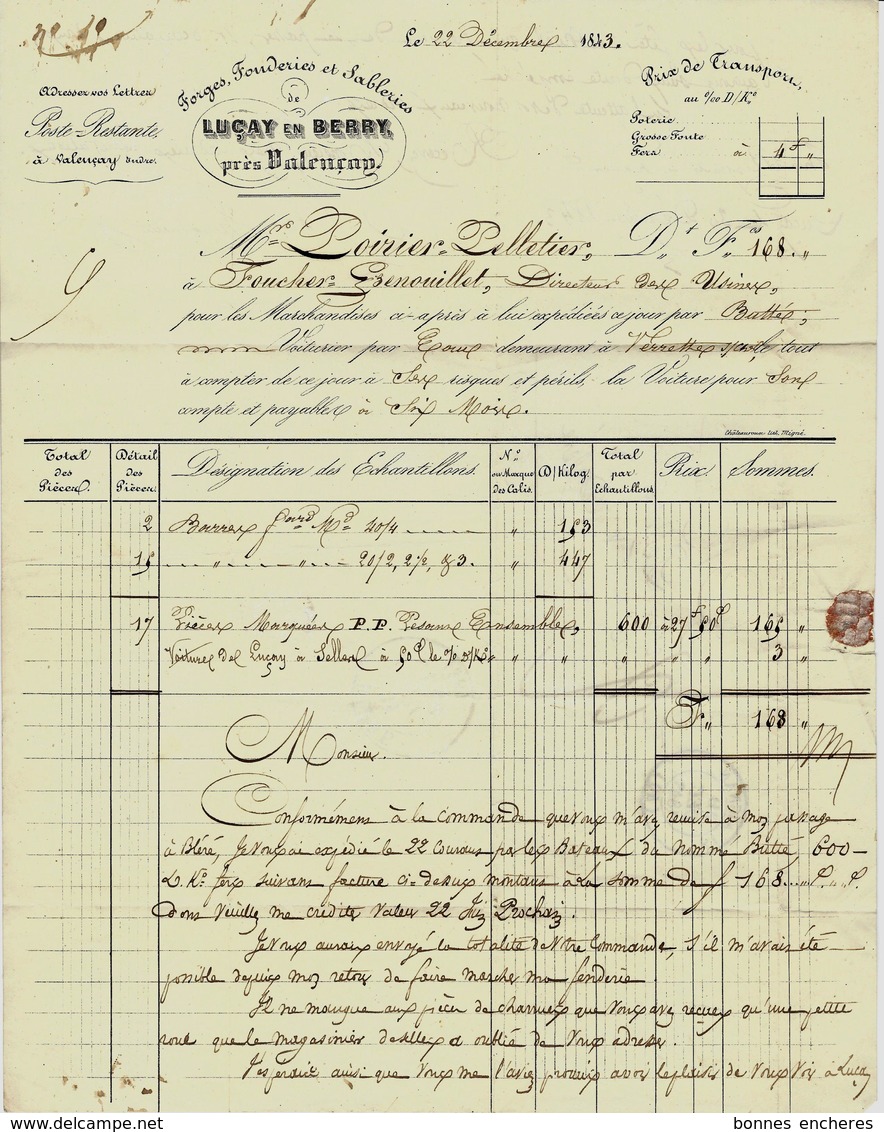 Le 22 Décembre 1843.
Forges, Fonderies et Sableries
de
LUÇAY EN BERRY,
près Valençay.
Adresser vos Lettres
Poste-Restante,
à Valençay Indre.
Prix de Transport,
au %00 D/K.º
Poterie
Grosse Fonte
Fers à 4 f "
Mr Poirier-Pelletier, Dt Fcs 168 "
à Foucher-Grenouillet, Directeur des Usines,
pour les Marchandises ci-après à lui expédiées ce jour par Battée,
Voiturier par Eaux demeurant à le tout
à compter de ce jour à Ses risques et périls, la Voiture pour Son
compte et payable à Six Mois.
Châteauroux Lit. Migné.
Total des Pièces. Détail des Pièces Désignation des Echantillons. N.º ou Marque des Colis. D/Kilog. Total par Echantillons. Prix Sommes.
2 Barres quard Md 40/4 " 153
15 " " 20/2, 2½, & 3. " 447
17 Pièces Marquées P.P. Pesant Ensemble, 600 à 27 f 50 c 165 "
Voiture de Luçay à Selles à 50 c le % D/Ko " " " " " 3 "
Fr " 168 "
Monsieur.
Conformément à la commande que vous m'avez remise à mon passage
à Bléré, Je vous ai expédié le 22 Courant par les Bateaux du nommé Butté, 600
D. Ko fers suivant facture ci-dessus montant à la somme de f 168
dont Veuillez me créditer Valeur 22 Juin Prochain.
Je vous aurais envoyé la totalité de Votre Commande, s'il m'avait été
possible depuis mon retour de faire marcher ma fenderie.
Il ne manque aux pièces de charrues que vous avez reçues qu'une petite
roue que le magasinier de Selles a oublié de vous adresser.
J'espérais ainsi que vous me l'aviez promis avoir le plaisir de vous voir à Luçay
bonnes encheres